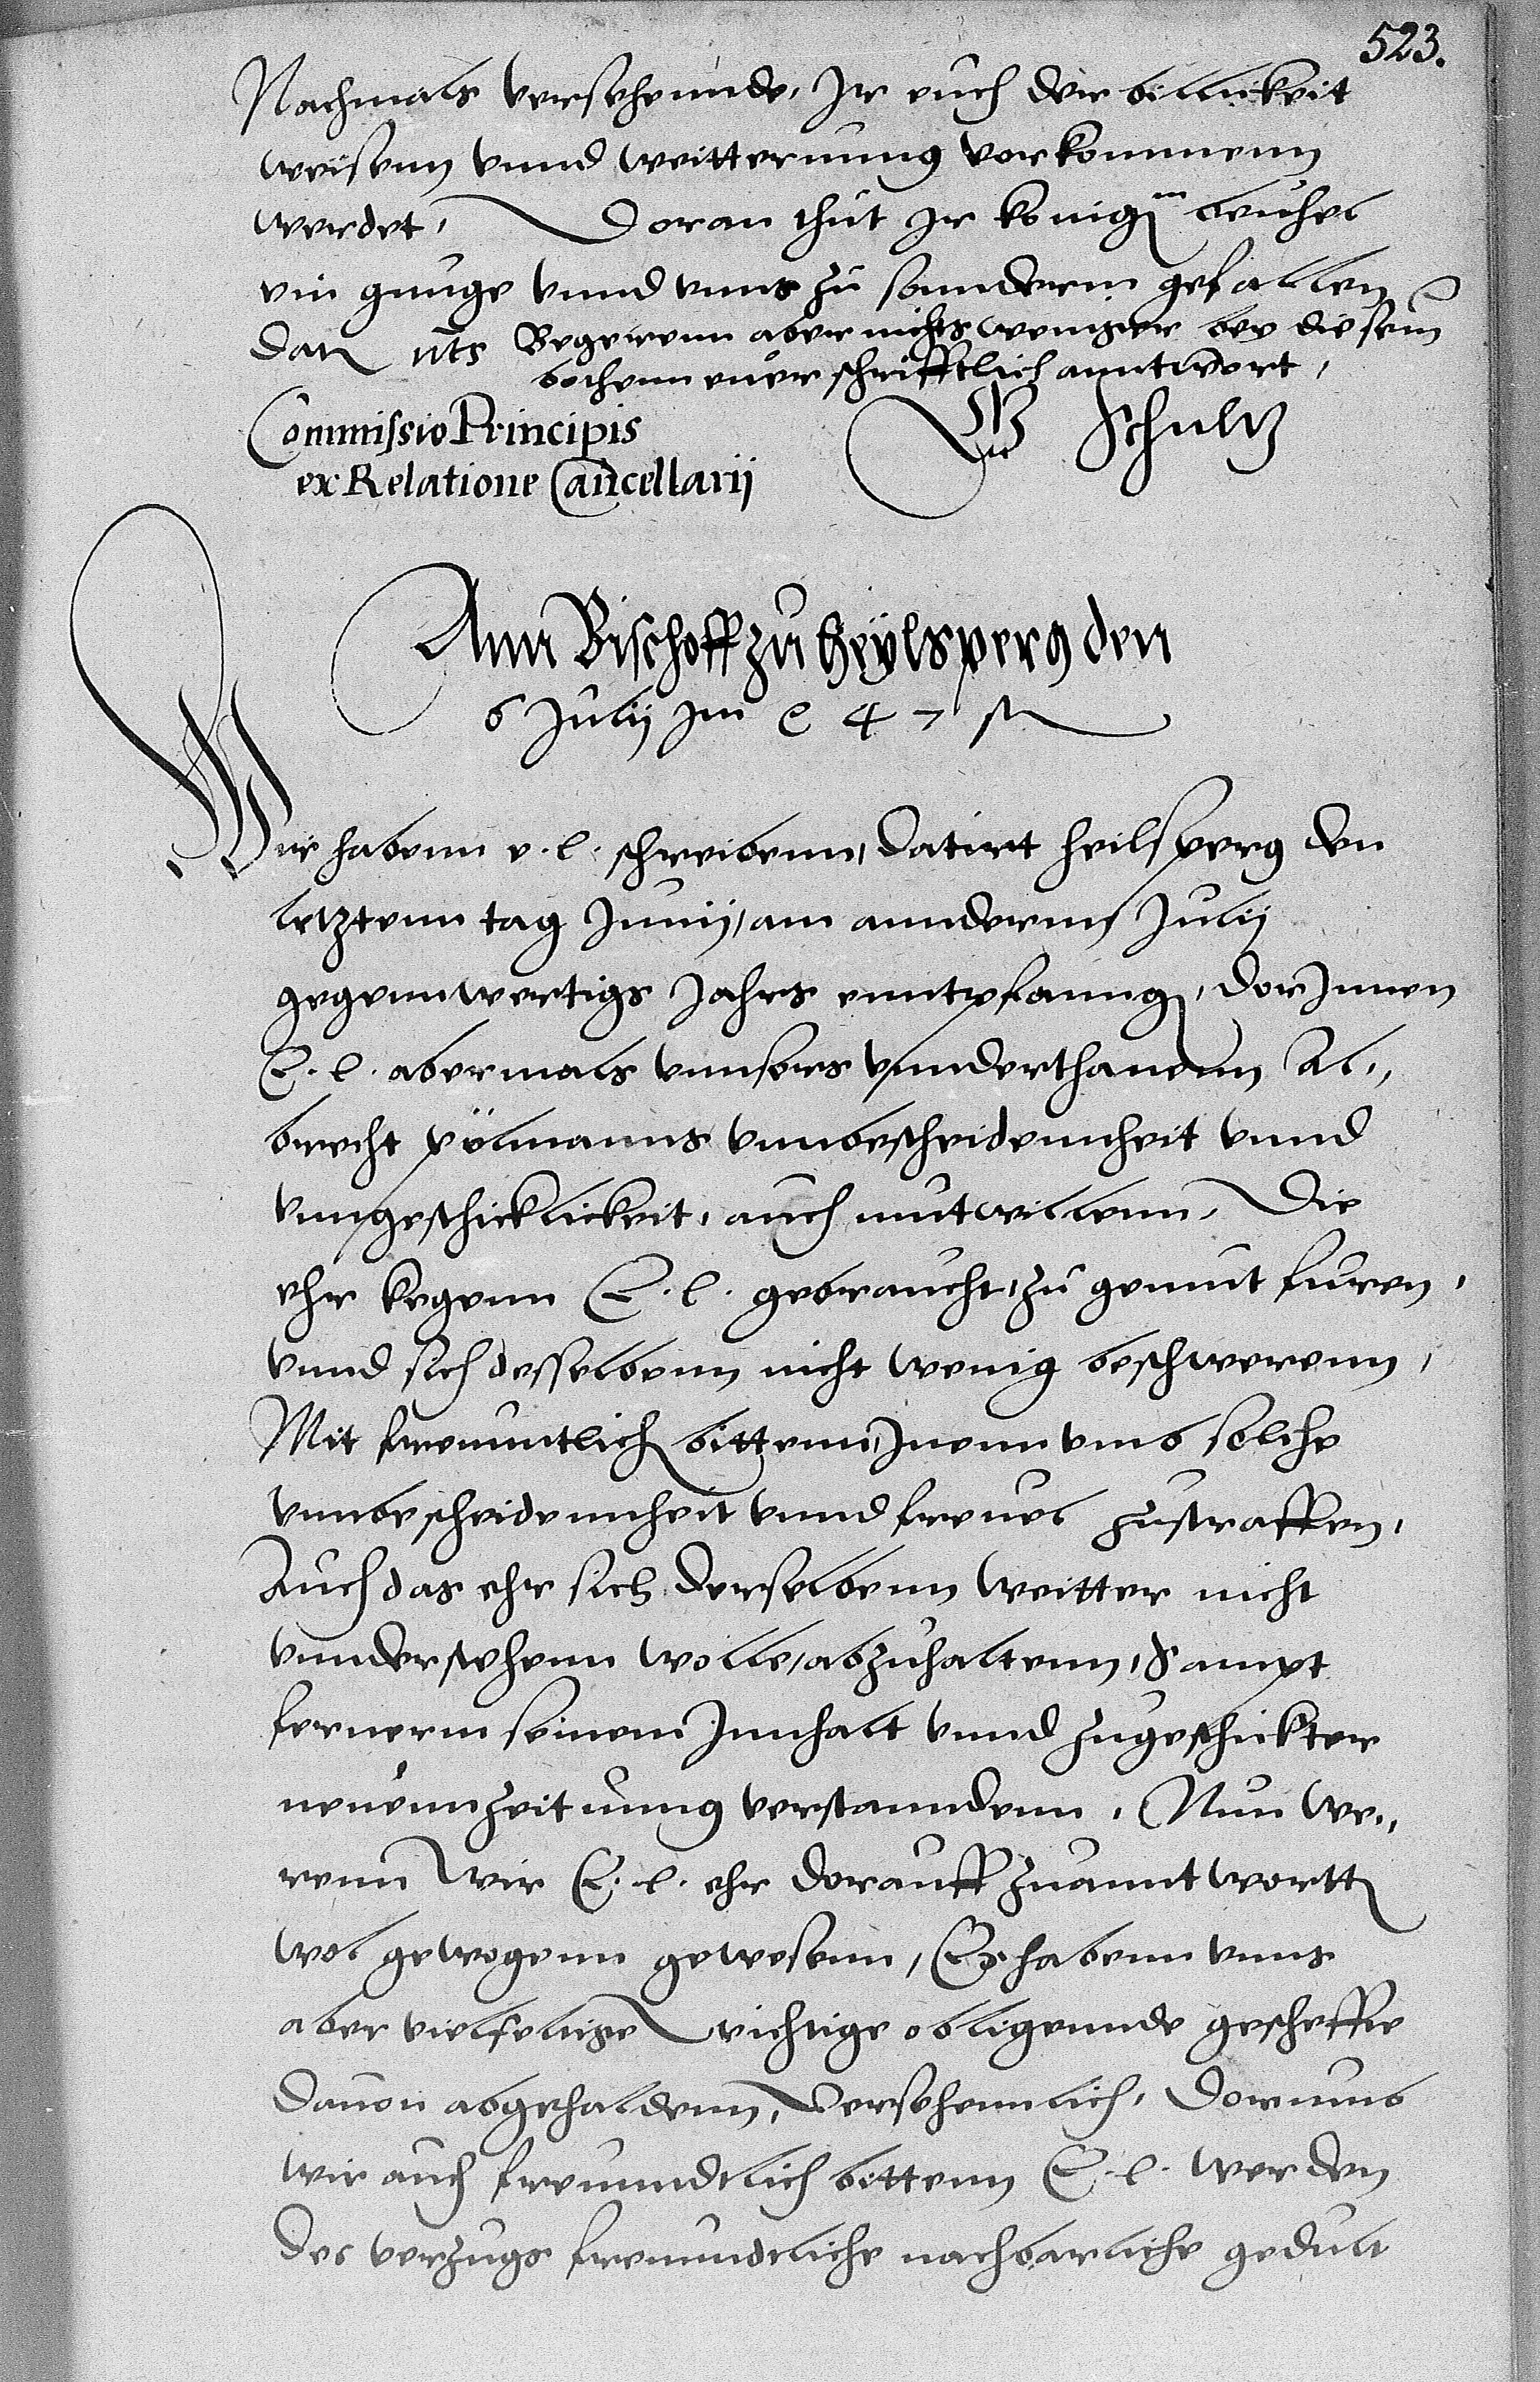 523.
Nachmals versehennde, Ir euch der billickeit
weisenn vnnd weitterunng vorkommenn
werdet, Doran thut Ir konig m beuhel
ein gnuge vnnd vnns zu sonnderm gefallen
Dat uts Begerenn aber nichts weniger bey diesem
bothenn euer schrifftlich anntwort,
Commissio Principis
ex Relatione Cancellarii
Schultz
Ann Bischoff zu Heylsperg den
6 Julij im 47
Wir habenn e. l. schreibenn, datirt heilsperg den
letztenn tag Junij, am anndernn Julij
gegennwertigs Jahrs enntpfanng, dorInnen
E. l. abermals vnnsers vnnderthanenn Al„
brecht pölmanns vnnbescheidennheit vnnd
vnngeschicklickeit, auch mutwillenn, Die
ehr kegenn E. l. gebraucht, zu gemut furen,
vnnd sich desselbenn nicht wenig beschwerenn,
Mit freuntlich bittenn, Inenn vmb solche
vnnbescheidennheit vnnd freuel zustraffen,
Auch das ehr sich derselbenn weitter nicht
vnnderstehenn wolle, abzuhaltenn, Sampt
fernerm seinem Innhalt vnnd zugeschickter
neuenn Zeitunng verstanndenn, Nun we„
renn wir E. l. ehr dorauff zuanntwortt
wol gewogenn gewesenn, Es habenn vnns
aber vielfeltige wichtige obligennde gescheffte
dauon abgehaldenn, Versehennlich, Dorumb
wir auch freunndtlich bittenn E. l. werden
des verzugs freundtliche nachbarliche gedult